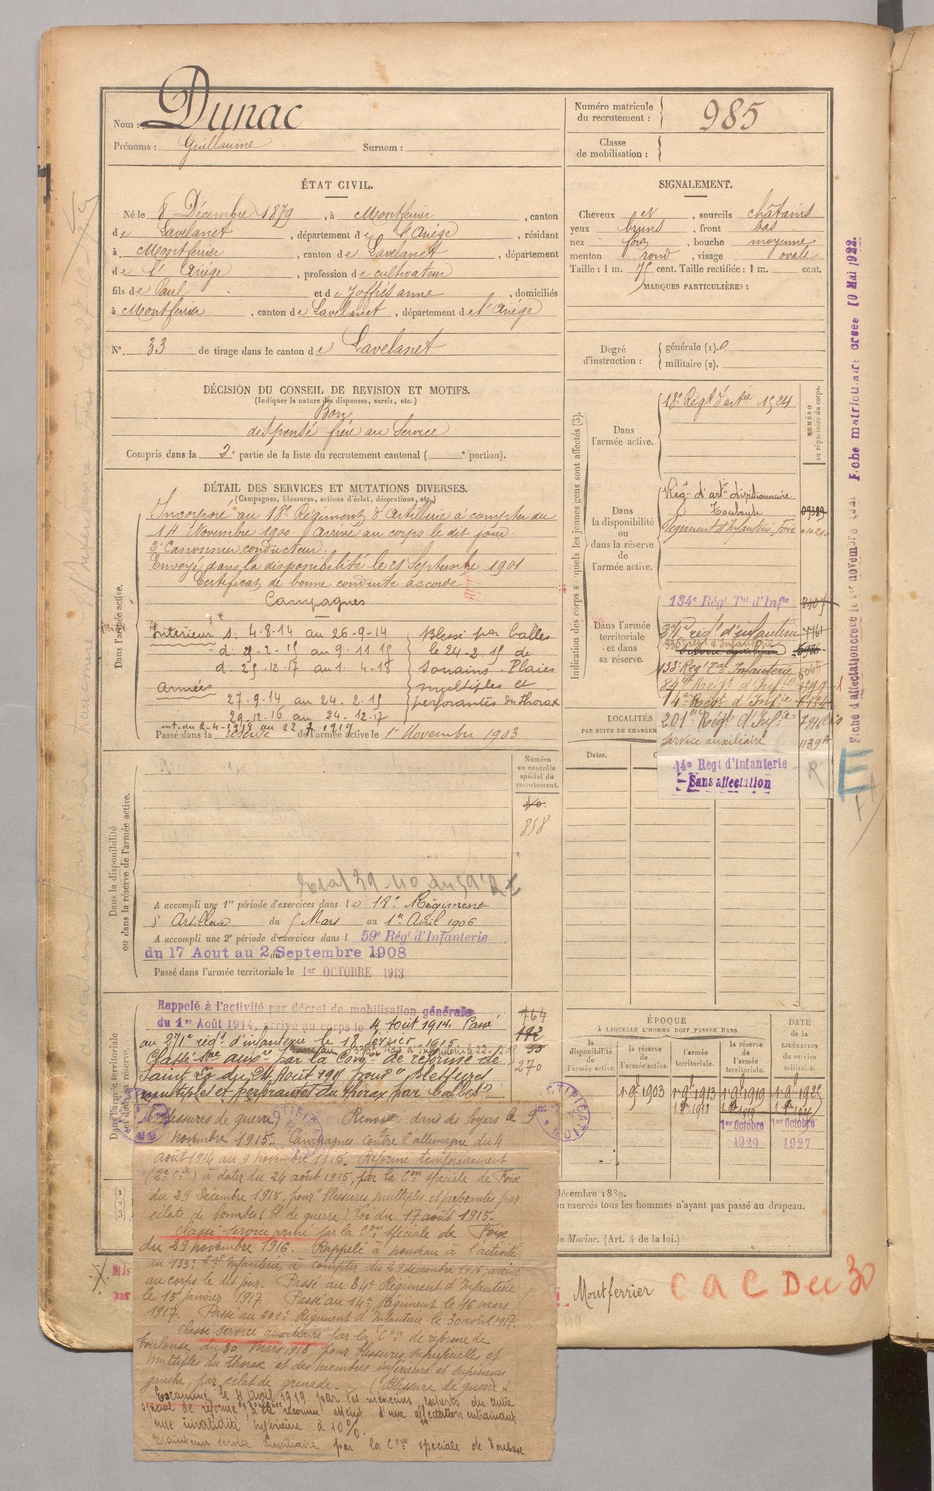 Nom : Dunac
Prénoms : Guillaume Surnom :
Numéro matricule du recrutement : 985
Classe de mobilisation :
ÉTAT CIVIL.
Né le 8 Décembre 1879, à Montferrier, canton
de Lavelanet, département de l'Ariège, résidant
à Montferrier, canton de Lavelanet, département
de l'Ariège, profession de cultivateur
fils de Paul et de Joffre anne, domiciliés
à Montferrier, canton de Lavelanet, département de l'Ariège
N° 33 de tirage dans le canton de Lavelanet
SIGNALEMENT.
Cheveux et, sourcils châtains
yeux bruns, front bas
nez fort, bouche moyenne
menton rond, visage ovale
Taille : 1 m. 75 cent. Taille rectifiée : 1 m. cent.
MARQUES PARTICULIÈRES :
Degré d'instruction : générale (1). 0
militaire (2).
DÉCISION DU CONSEIL DE REVISION ET MOTIFS.
(Indiquer la nature des dispenses, sursis, etc.)
Bon
dispensé frère au Service
Compris dans la 2e partie de la liste du recrutement cantonal ( e portion).
DÉTAIL DES SERVICES ET MUTATIONS DIVERSES.
(Campagnes, blessures, actions d'éclat, décorations, etc.)
Dans l'armée active.
Incorporé au 18e Régiment d'Artillerie à compter du
14 Novembre 1900. Arrivé au corps le dit jour.
2e Canonnier conducteur.
Envoyé dans la disponibilité le 21 Septembre 1901
Certificat de bonne conduite accordé
Campagnes
Intérieur d: 4-8-14 au 26-9-14
d: 25-2-15 au 9-11-15
d: 25-12-17 au 1-4-18
armées
27-9-14 au 24-2-15
29-12-16 au 24-12-17
int. du 2-4-1918 au 22-2-1919
Blessé par balles
le 24-2-15 de
Souains Plaies
multiples et
perforantes du thorax
Passé dans la réserve de l'armée active le 1er Novembre 1903
Indication des corps auxquels les jeunes gens sont affectés (3).
NUMÉRO au répertoire du corps.
Dans l'armée active.
18e Régt d'artie 1524
Dans la disponibilité ou dans la réserve de l'armée active.
Régt d'art. divisionnaire
Toulouse
Régiment d'Infanterie Foix
Dans l'armée territoriale et dans sa réserve.
134e Régt Tal d'Infie
371e régt d'infanterie
133e Régt Tal Infanterie
84e Régt d'Infie
14e Régt d'Infie
201e Régt d'Infie
Service auxiliaire 1139A
14e Régt d'Infanterie
Sans affectation
R
LOCALITÉS
PAR SUITE DE CHANGEM
Dates.
Dans la disponibilité ou dans la réserve de l'armée active.
Numéro au contrôle spécial du recrutement.
858
A accompli une 1re période d'exercices dans le 18e Régiment
d'Artillerie du 5 Mars au 1er Avril 1906
A accompli une 2e période d'exercices dans l 59e Régt d'Infanterie
du 17 Aout au 2 Septembre 1908
Passé dans l'armée territoriale le 1er OCTOBRE 1913
Dans l'armée territoriale
Rappelé à l'activité par décret de mobilisation générale
du 1er Août 1914, arrivé au corps le 4 août 1914. Passé
au 371e régt d'infanterie le 18 février 1915.
Classé Sce auxre par la Comon de réforme de
Saint Lô du 24 Août 1915 pour "blessures
multiples et perforantes du thorax par balles"
764
192
53
270
(Blessures de guerre) Renvoyé dans ses foyers le 9
novembre 1915. Campagnes contre l'allemagne du 4
août 1914 au 9 novembre 1915. Réformé temporairement
à dater du 24 août 1915, par la Con spéciale de Foix
du 29 décembre 1915, pour "blessures multiples et perforantes par
éclats de bombes (Bl. de guerre) Loi du 17 août 1915.
Classé service armé par la Con spéciale de Foix
du 29 novembre 1916. Rappelé à nouveau à l'activité
au 133e Régt d'Infanterie à compter du 29 décembre 1916, arrivé
au corps le dit jour. Passé au 84e Régiment d'Infanterie
le 15 janvier 1917. Passé au 14e Régiment le 16 mars
1917. Passé au 201e Régiment d'Infanterie le 30 avril 1917.
Classé service auxiliaire par la Con de réforme de
Toulouse du 30 mars 1918 pour blessures superficielles et
multiples du thorax et des membres inférieurs et supérieurs
gauche, par éclat de grenade. (Blessure de guerre)
Examiné le 4 Avril 1919 par les médecins experts du centre
spécial de réforme, a été reconnu atteint d'une affectation entrainant
une invalidité inférieure à 10%.
Maintenu service Auxiliaire par la Con spéciale de Toulouse
ÉPOQUE
À LAQUELLE L'HOMME DOIT PASSER DANS
la disponibilité de l'armée active.
la réserve de l'armée active.
l'armée territoriale.
la réserve de l'armée territoriale.
DATE de la LIBÉRATION du service militaire.
1er 9bre 1903
1er 9bre 1913
1er 9bre 1919
1er 9bre 1925
1er Octobre 1920
1er Octobre 1927
décembre 1889.
on exercés tous les hommes n'ayant pas passé au drapeau.
la Marine. (Art. 4 de la loi.)
Montferrier
CAC Dec 30
Fiche d'affectation créée le 1er novembre
Fiche matriculaire créée 10 Mai 1922.
E